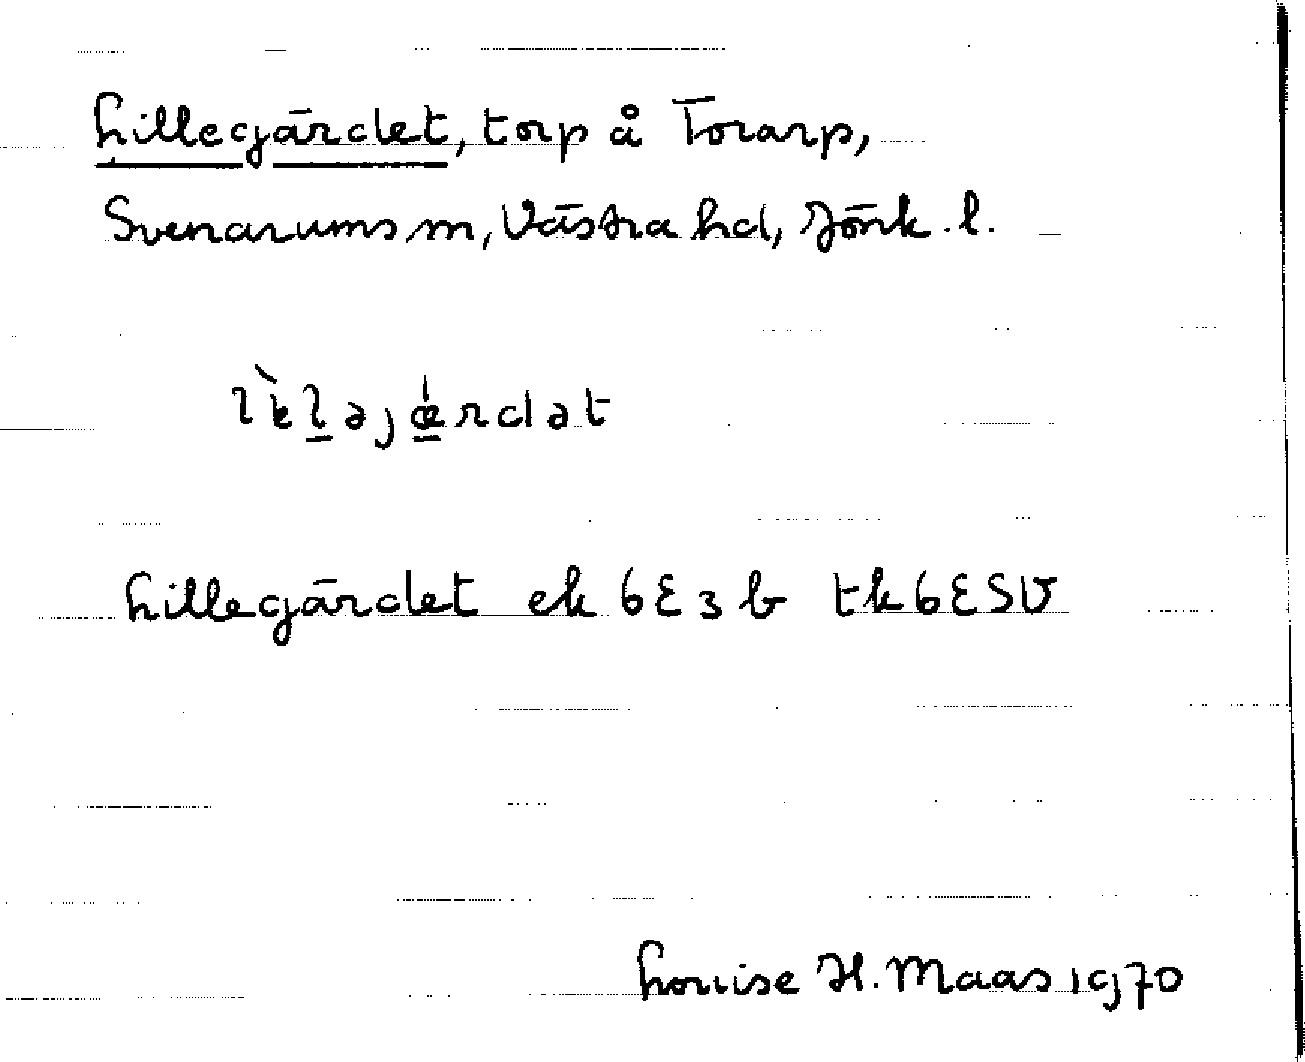 Lillegärdet, torp å Torarp,
Svenarums sn, Västra hd, Jönk. l.
lìlləjæ̀rdət
Lillegärdet ek 6E3b tk6ESV
Louise H. Maas 1970